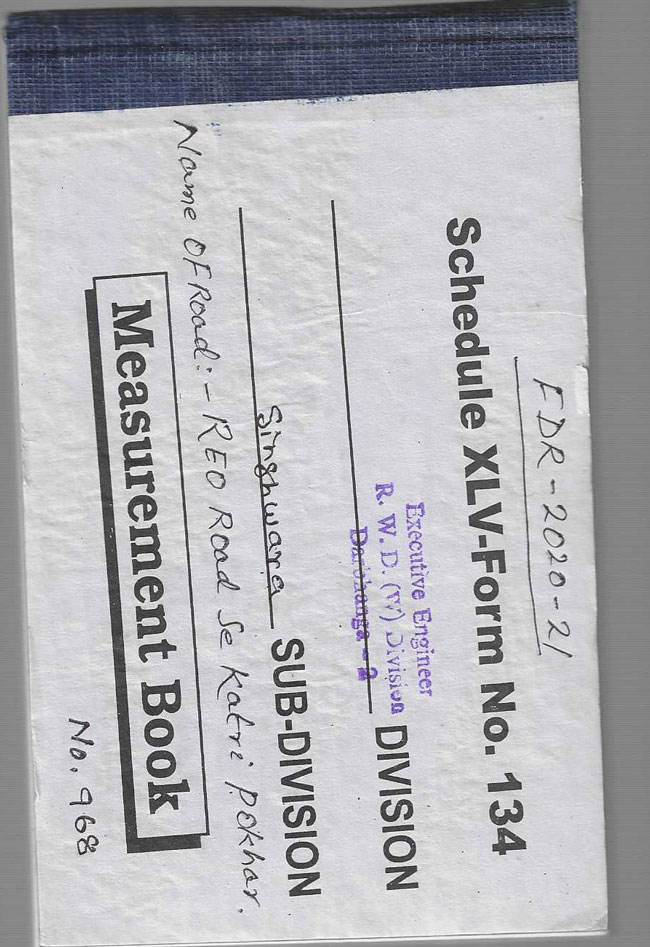 FDR-2020-21
Schedule XLV-Form No. 134
Executive Engineer
R. W. D. (W) Division
Darbhanga - 2
DIVISION
Singhwara SUB-DIVISION
Name of Road:- REO Road se Katri Pokhar.
Measurement Book
No. 968